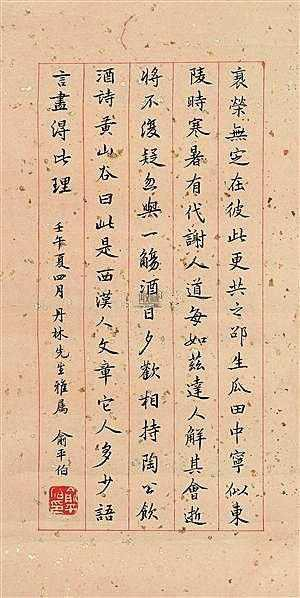 衰榮無定在彼此更共之邵生瓜田中寧似東
陵時寒暑有代謝人道每如茲達人解其會逝
將不復疑忽與一觴酒日夕歡相持陶公飲
酒詩黃山谷曰此是西漢人文章它人多少語
言盡得此理
壬午夏四月丹林先生雅屬 俞平伯
俞平伯印